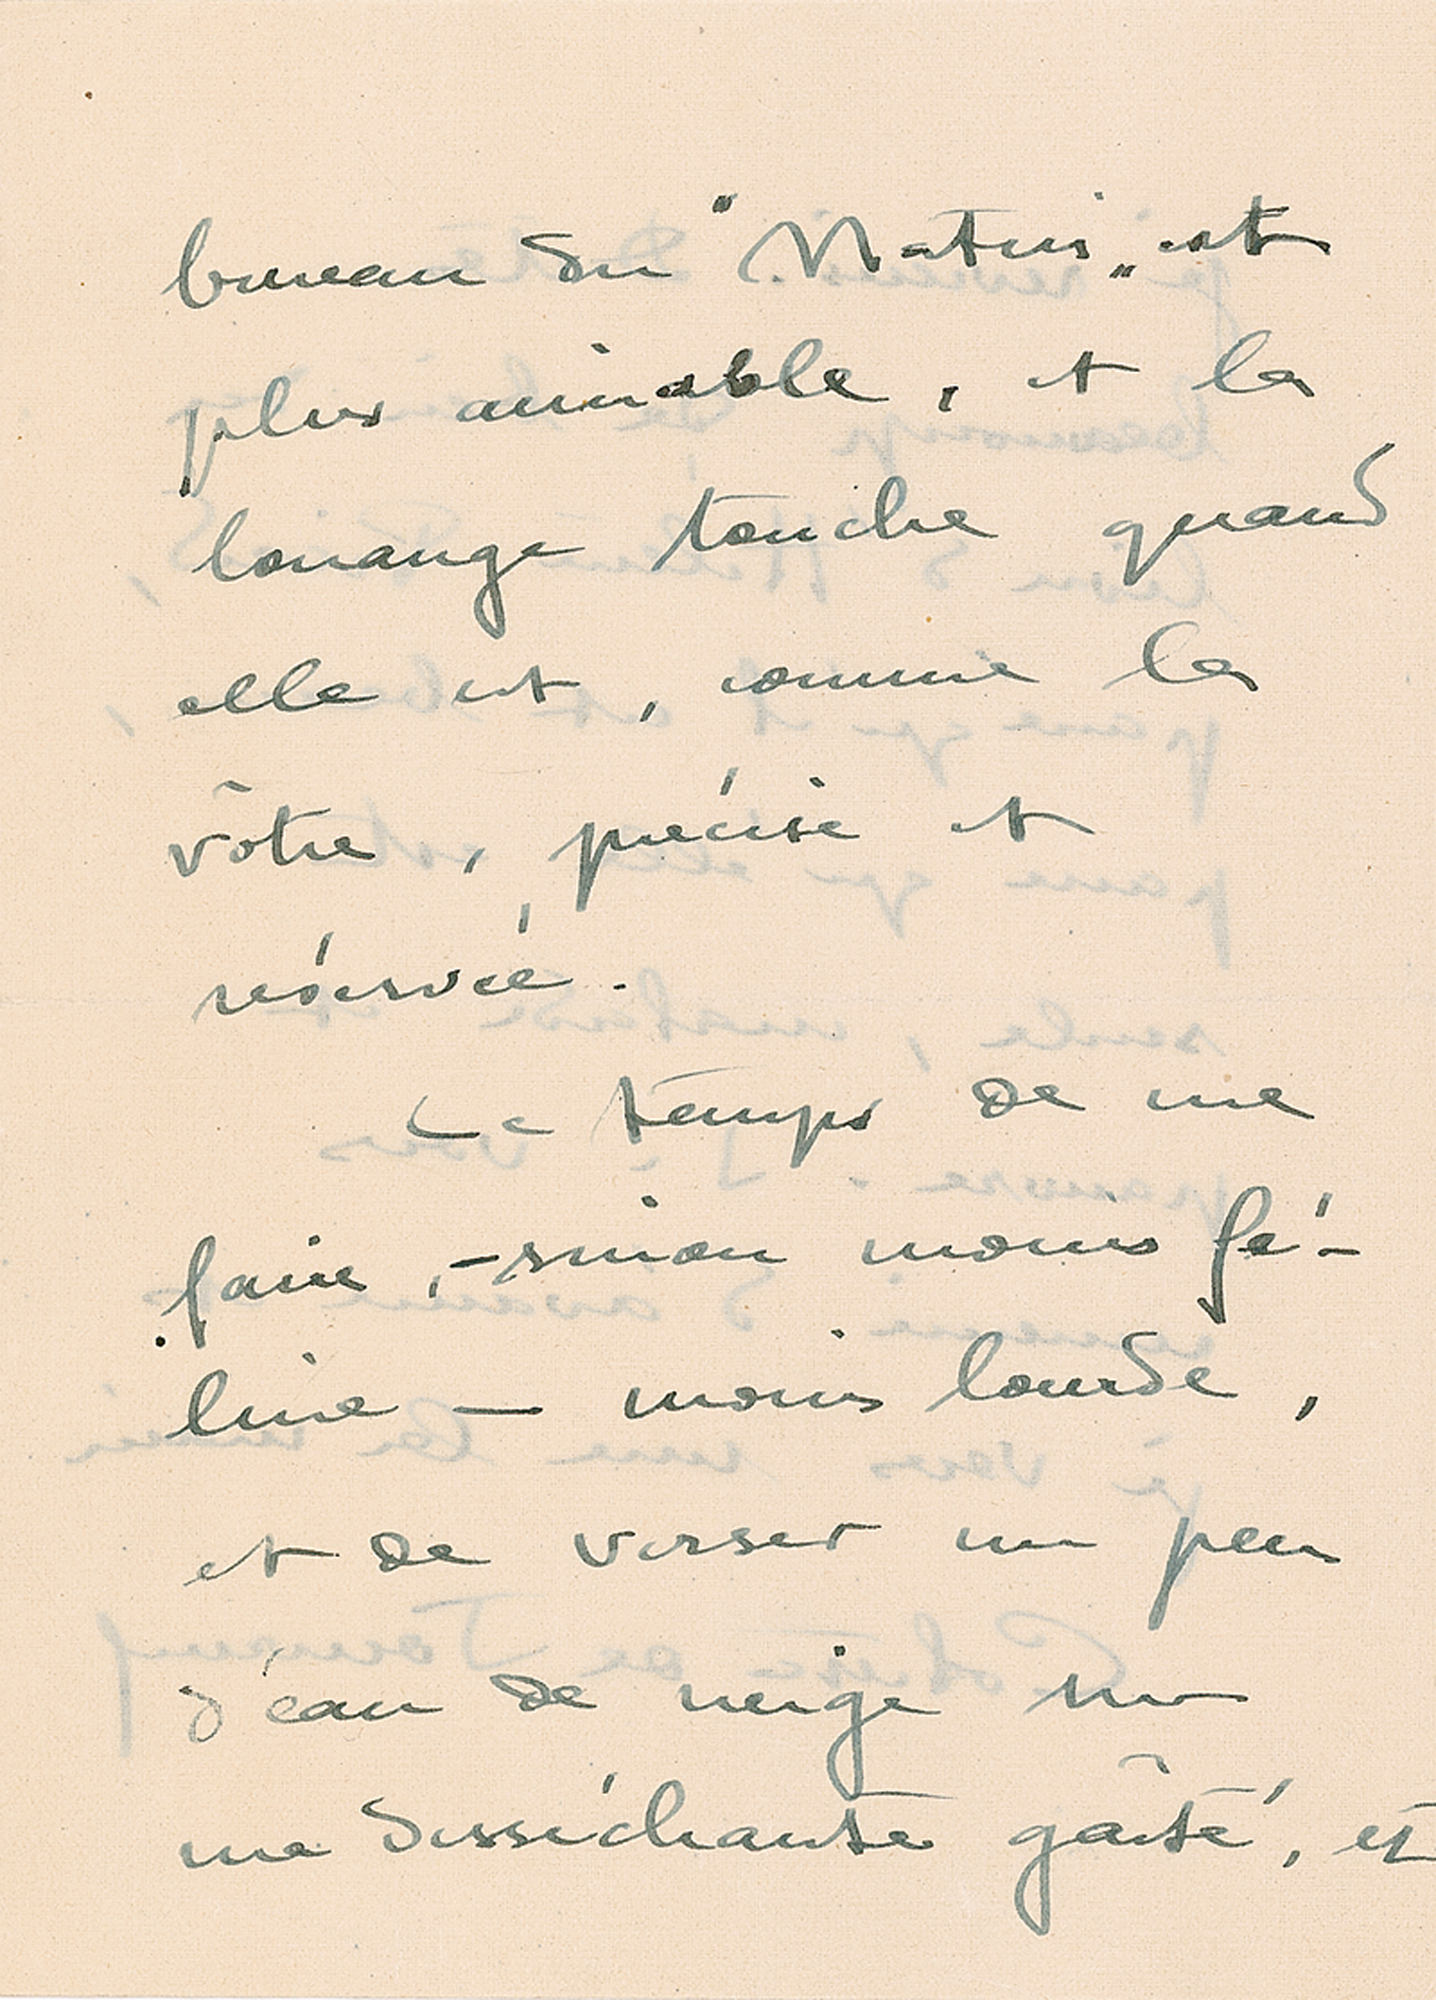 bureau du "Matin" est
plus aimable, et la
louange touche quand
elle est, comme la
vôtre, précise et
réservée.
Le temps de me
faire, – sinon moins fé-
line – moins lourde,
et de verser un peu
d'eau de neige sur
ma desséchante gaîté, et